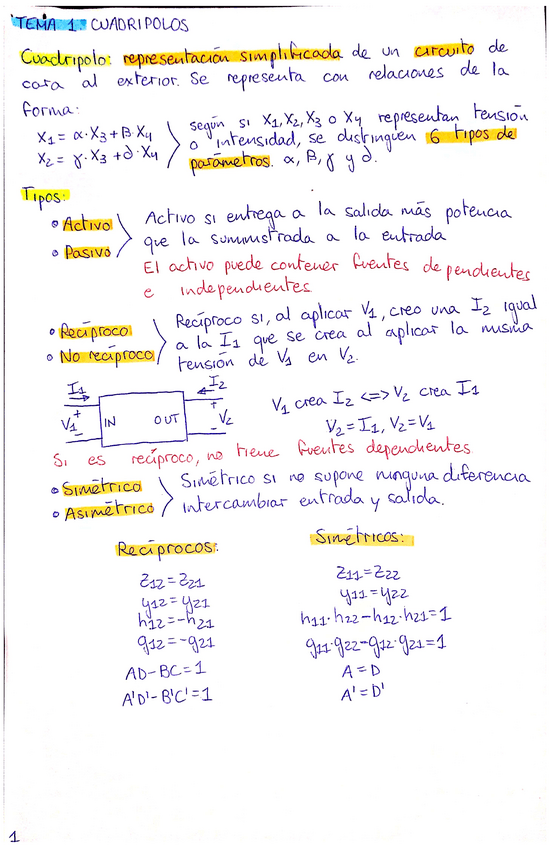 TEMA 1. CUADRIPOLOS
Cuadripolo: representación simplificada de un circuito de
cara al exterior. Se representa con relaciones de la
forma:
X1 = α·X3+β·X4
X2 = γ·X3+∂·X4
según si X1, X2, X3 o X4 representan tensión
o intensidad, se distinguen 6 tipos de
parámetros. α, β, γ y ∂.
Tipos:
• Activo
• Pasivo
Activo si entrega a la salida más potencia
que la suministrada a la entrada
El activo puede contener fuentes dependientes
e independientes
• Recíproco
• No recíproco
Recíproco si, al aplicar V1, creo una I2 igual
a la I1 que se crea al aplicar la misma
tensión de V1 en V2.
I1 I2
V1 + - IN OUT + - V2
V1 crea I2 <=> V2 crea I1
V2=I1, V2=V1
Si es recíproco, no tiene fuentes dependientes
• Simétrico
• Asimétrico
Simétrico si no supone ninguna diferencia
intercambiar entrada y salida.
Recíprocos:
z12=z21
y12=y21
h12=-h21
g12=-g21
AD-BC=1
A'D'-B'C'=1
Simétricos:
z11=z22
y11=y22
h11·h22-h12·h21=1
g11·g22-g12·g21=1
A=D
A'=D'
1